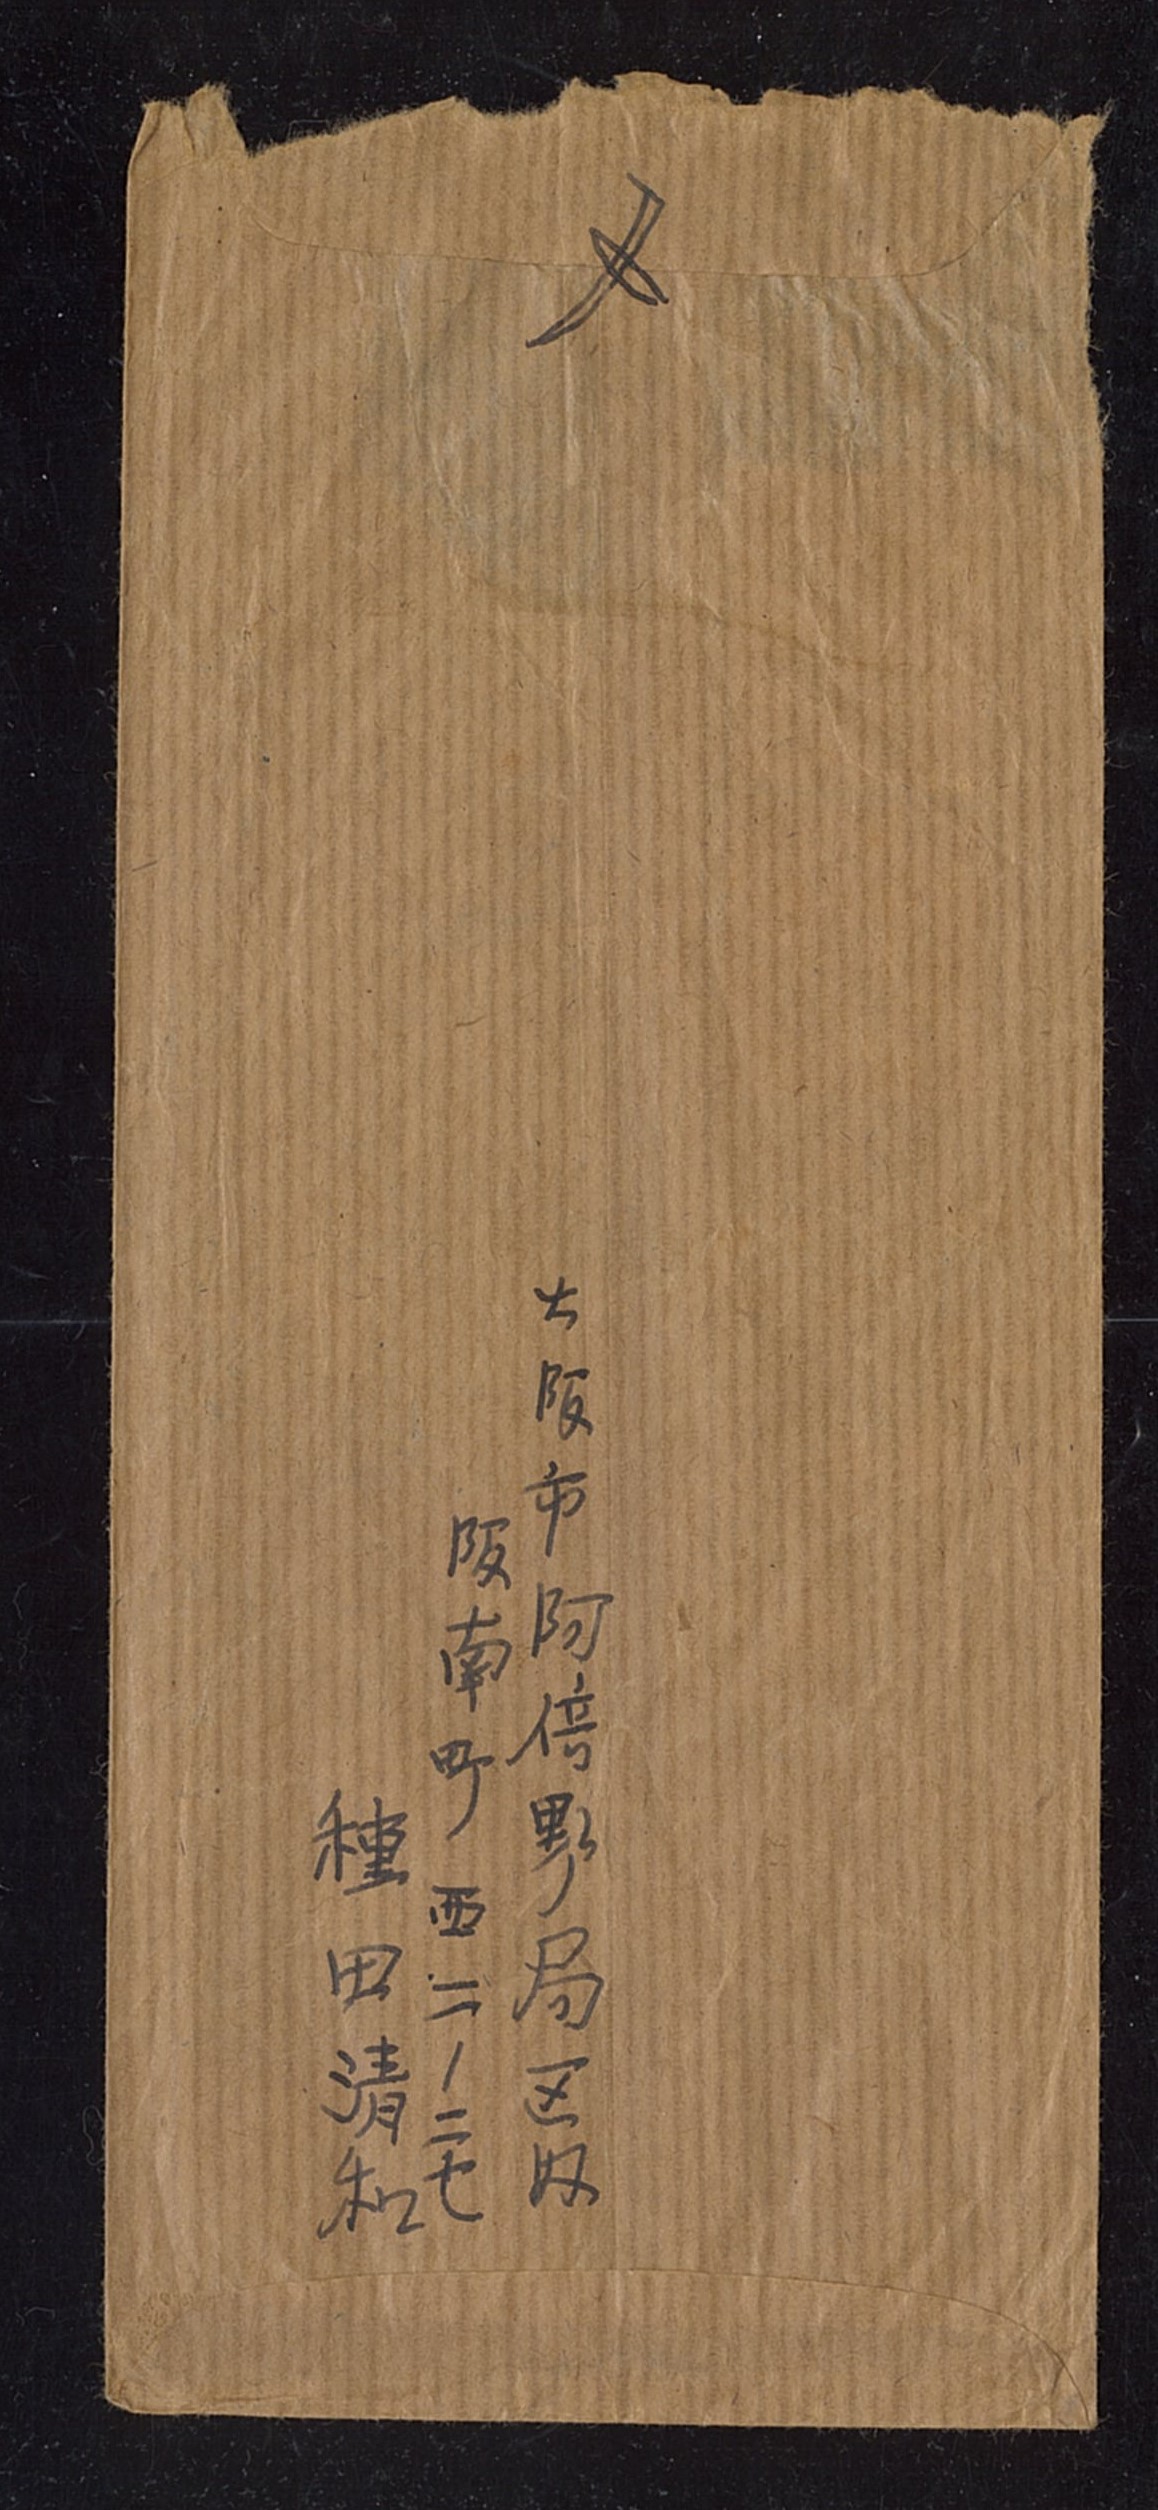 〆
大阪市阿倍野局区奴
阪南町西二ー二七
種田清和